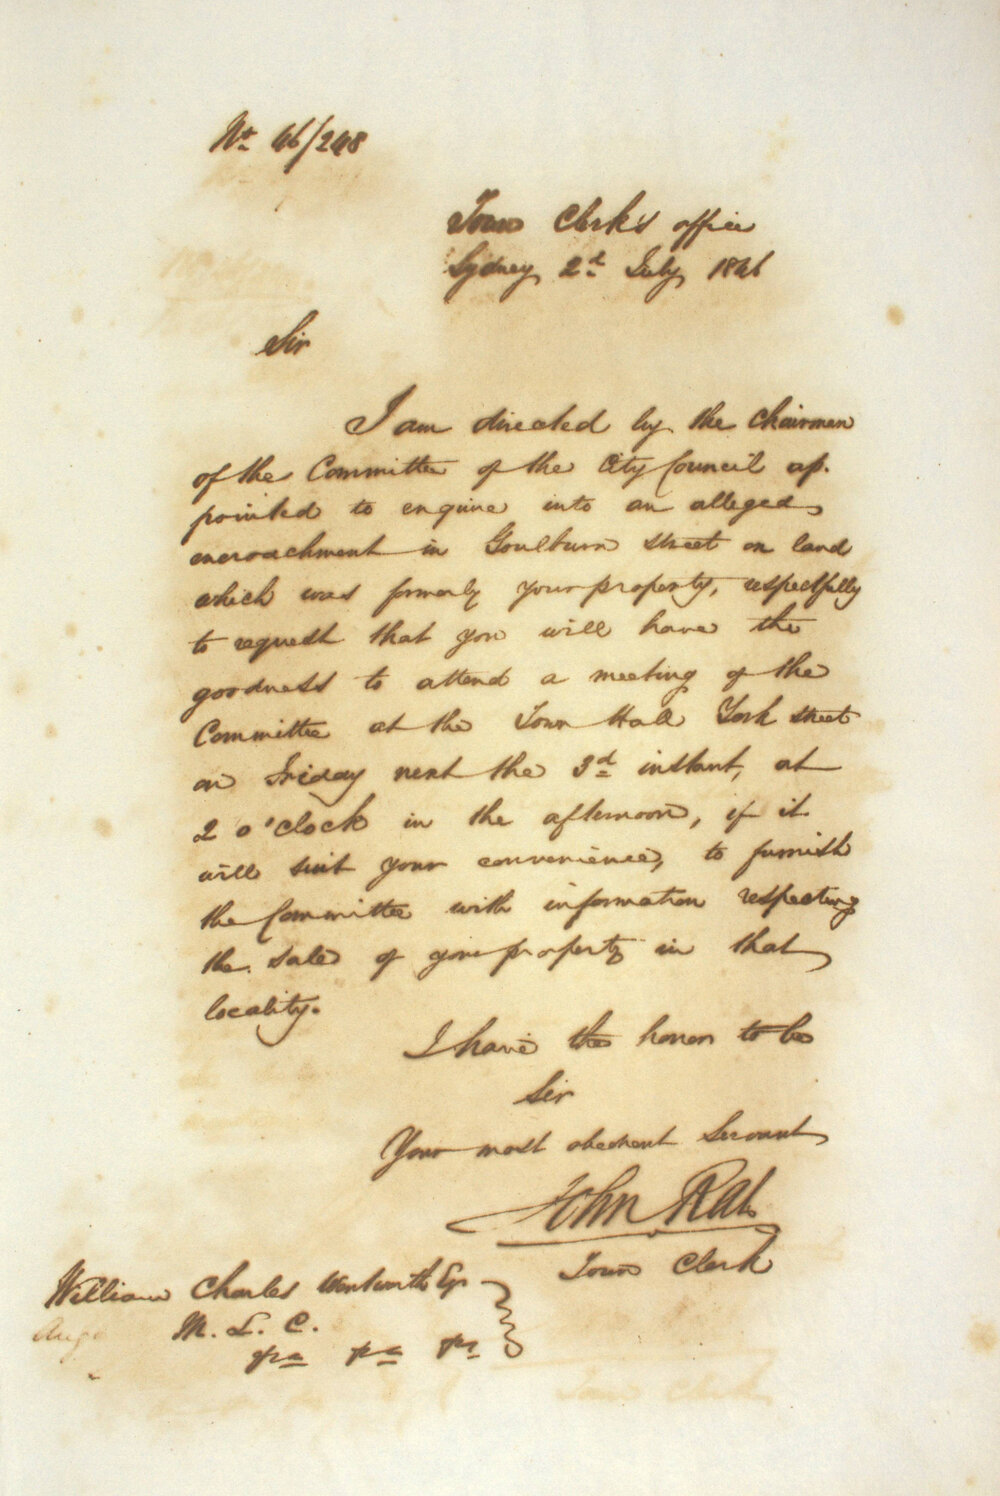 No. 46/248
Town Clerk's office
Sydney 2d July 1846
Sir
I am directed by the Chairman
of the Committee of the City Council ap-
pointed to enquire into an alleged
encroachment in Goulburn street on land
which was formerly your property, respectfully
to request that you will have the
goodness to attend a meeting of the
Committee at the Town Hall York street
on Friday next the 3d instant, at
2 o'clock in the afternoon, if it
will suit your convenience, to furnish
the Committee with information respecting
the sale of your property in that
locality.
I have the honor to be
Sir
Your most obedient Servant
John Rae
Town Clerk
William Charles Wentworth Esqr
M. L. C.